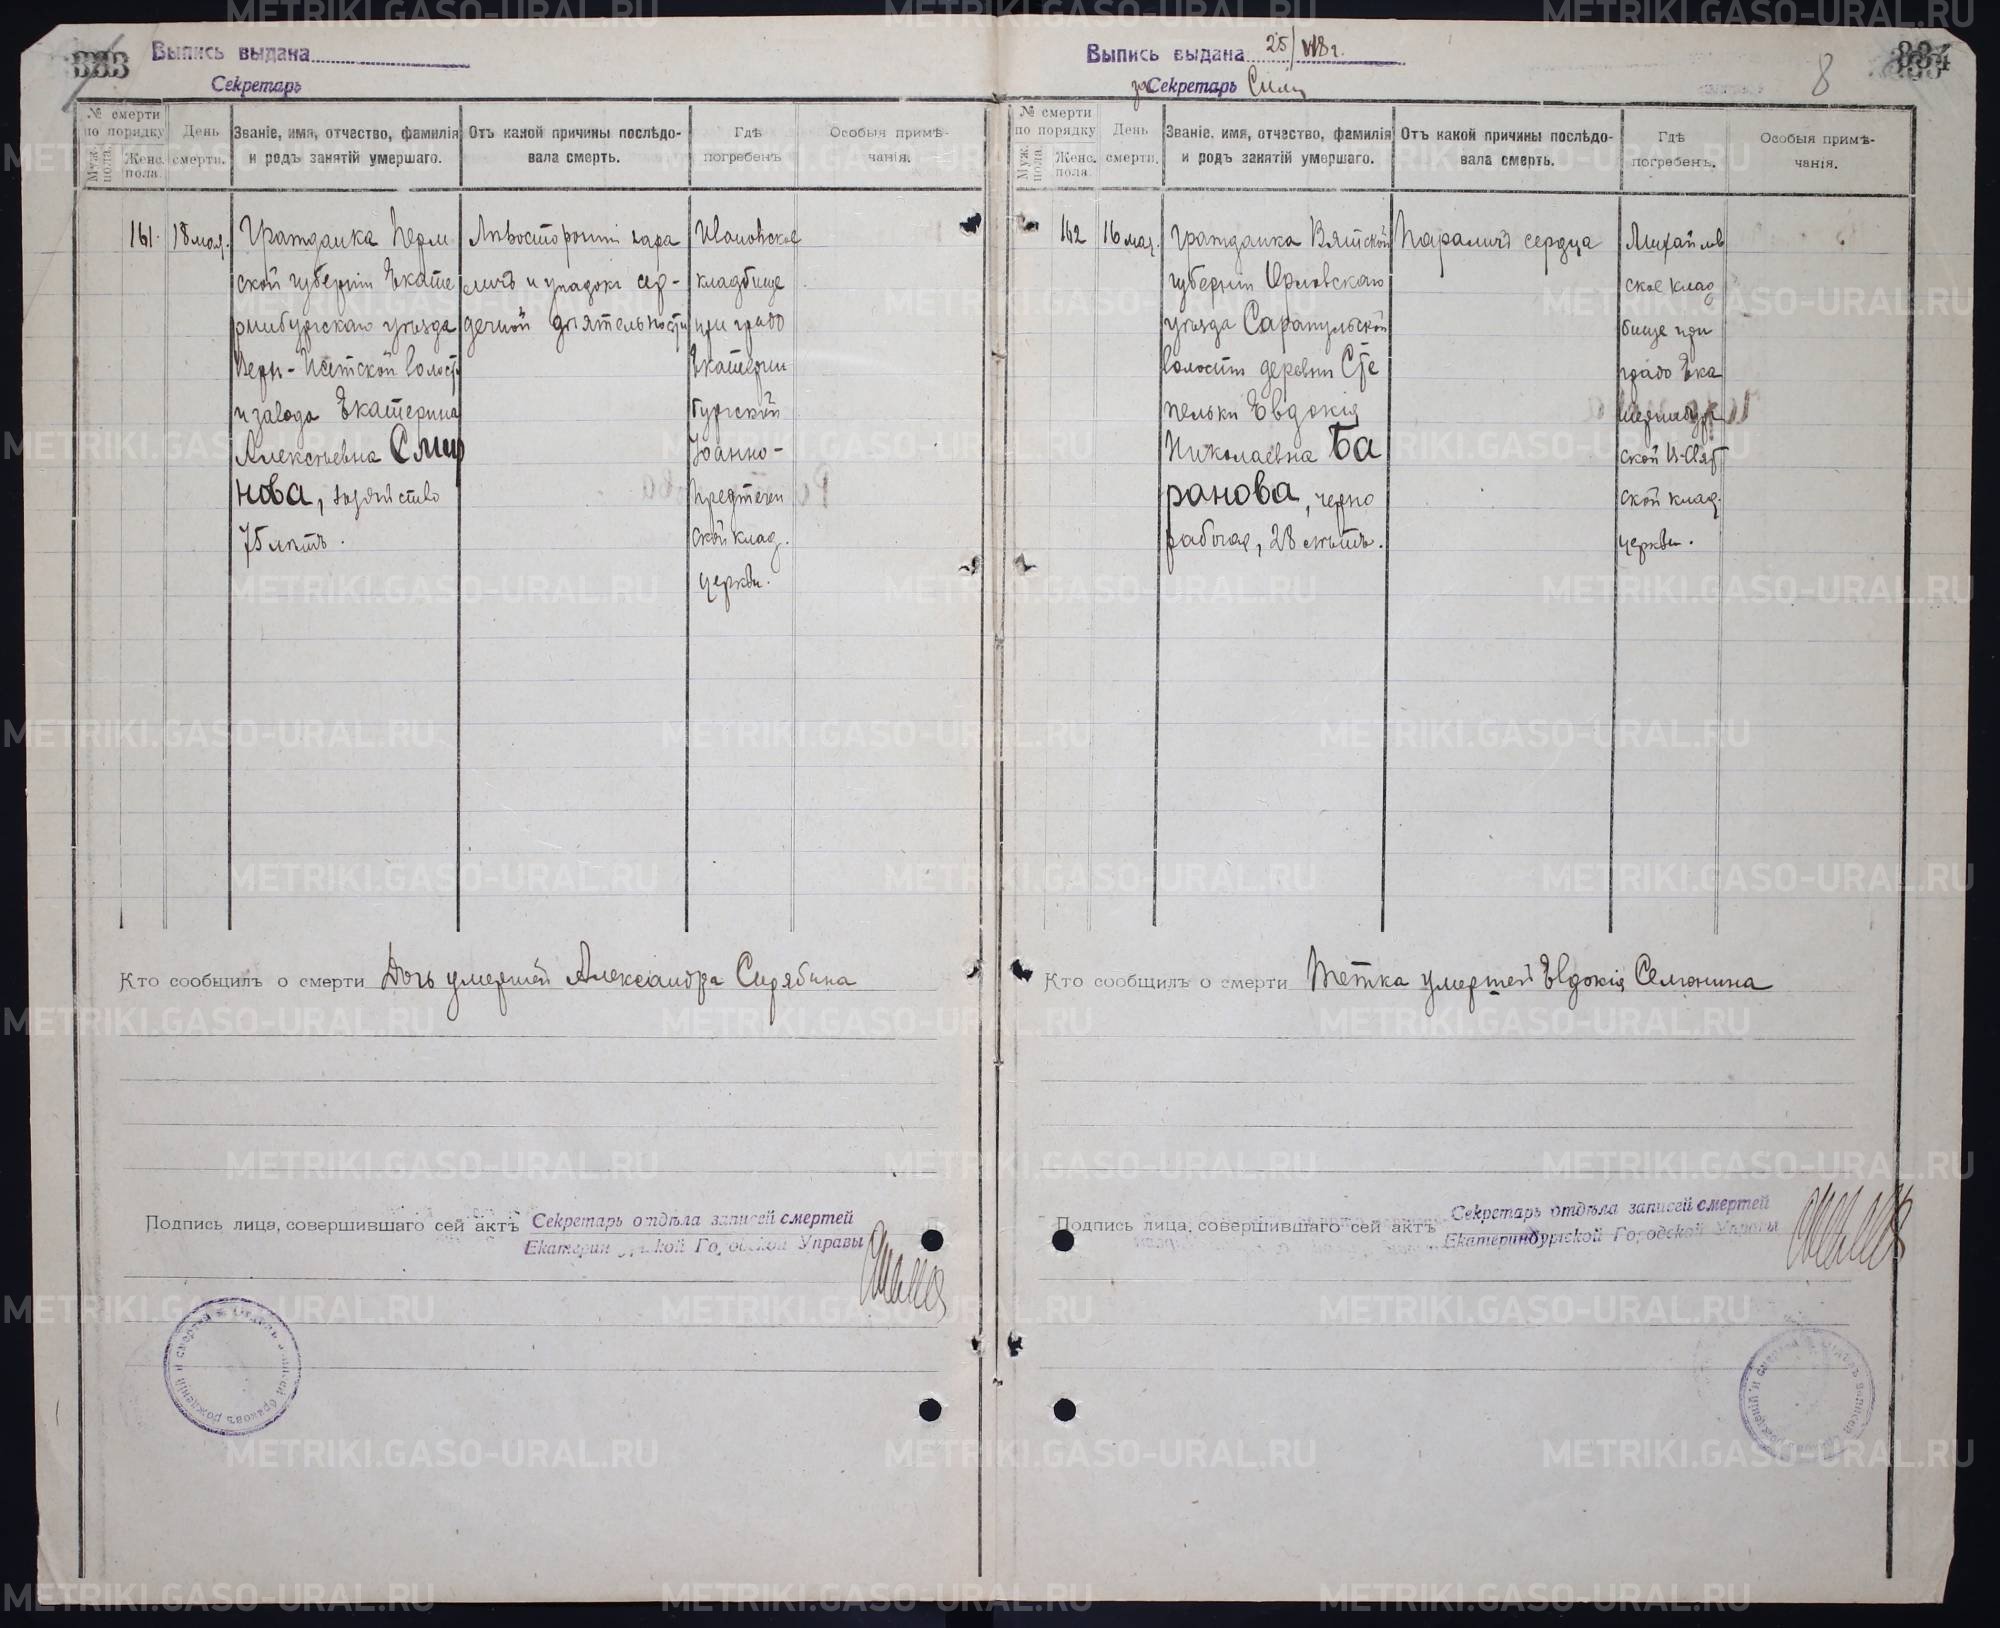 333
Выпись выдана
Секретарь
№ смерти по порядку
Муж. пола.
Женс. пола.
День смерти.
Званіе, имя, отчество, фамилія и родъ занятій умершаго.
Отъ какой причины послѣдовала смерть.
Гдѣ погребенъ
Особыя примѣчанія.
161.
18 мая.
Гражданка Перм
ской губерніи Екате
ринбургскаго уѣзда
Верх-Исетской волости
и завода Екатерина
Алексѣевна Смир
нова, хозяйство
75 лѣтъ.
Лѣвосторонній пара
личъ и упадокъ сер-
дечной дѣятельности
Ивановское
кладбище
при градо
Екатерин
бургской
Іоанно-
Предтечен
ской клад.
церкви.
Кто сообщилъ о смерти Дочь умершей Александра Скрябина
Подпись лица, совершившаго сей актъ Секретарь отдѣла записей смертей
Екатеринбургской Городской Управы
334
8
Выпись выдана 25/VII 8 г.
за Секретарь
№ смерти по порядку
Муж. пола.
Женс. пола.
День смерти.
Званіе, имя, отчество, фамилія и родъ занятій умершаго.
Отъ какой причины послѣдовала смерть.
Гдѣ погребенъ.
Особыя примѣчанія.
162
16 мая.
Гражданка Вятской
губерніи Орловскаго
уѣзда Сарапульской
волости деревни Сте
пельки Евдокія
Николаевна Ба
ранова, черно
рабочая, 28 лѣтъ.
Параличъ сердца
Михайлов
ское клад
бище при
градо Ека
теринбург
ской Всѣхсвят
ской клад.
церкви.
Кто сообщилъ о смерти Тетка умершей Евдокія Семонина
Подпись лица, совершившаго сей актъ Секретарь отдѣла записей смертей
Екатеринбургской Городской Управы
METRIKI.GASO-URAL.RU